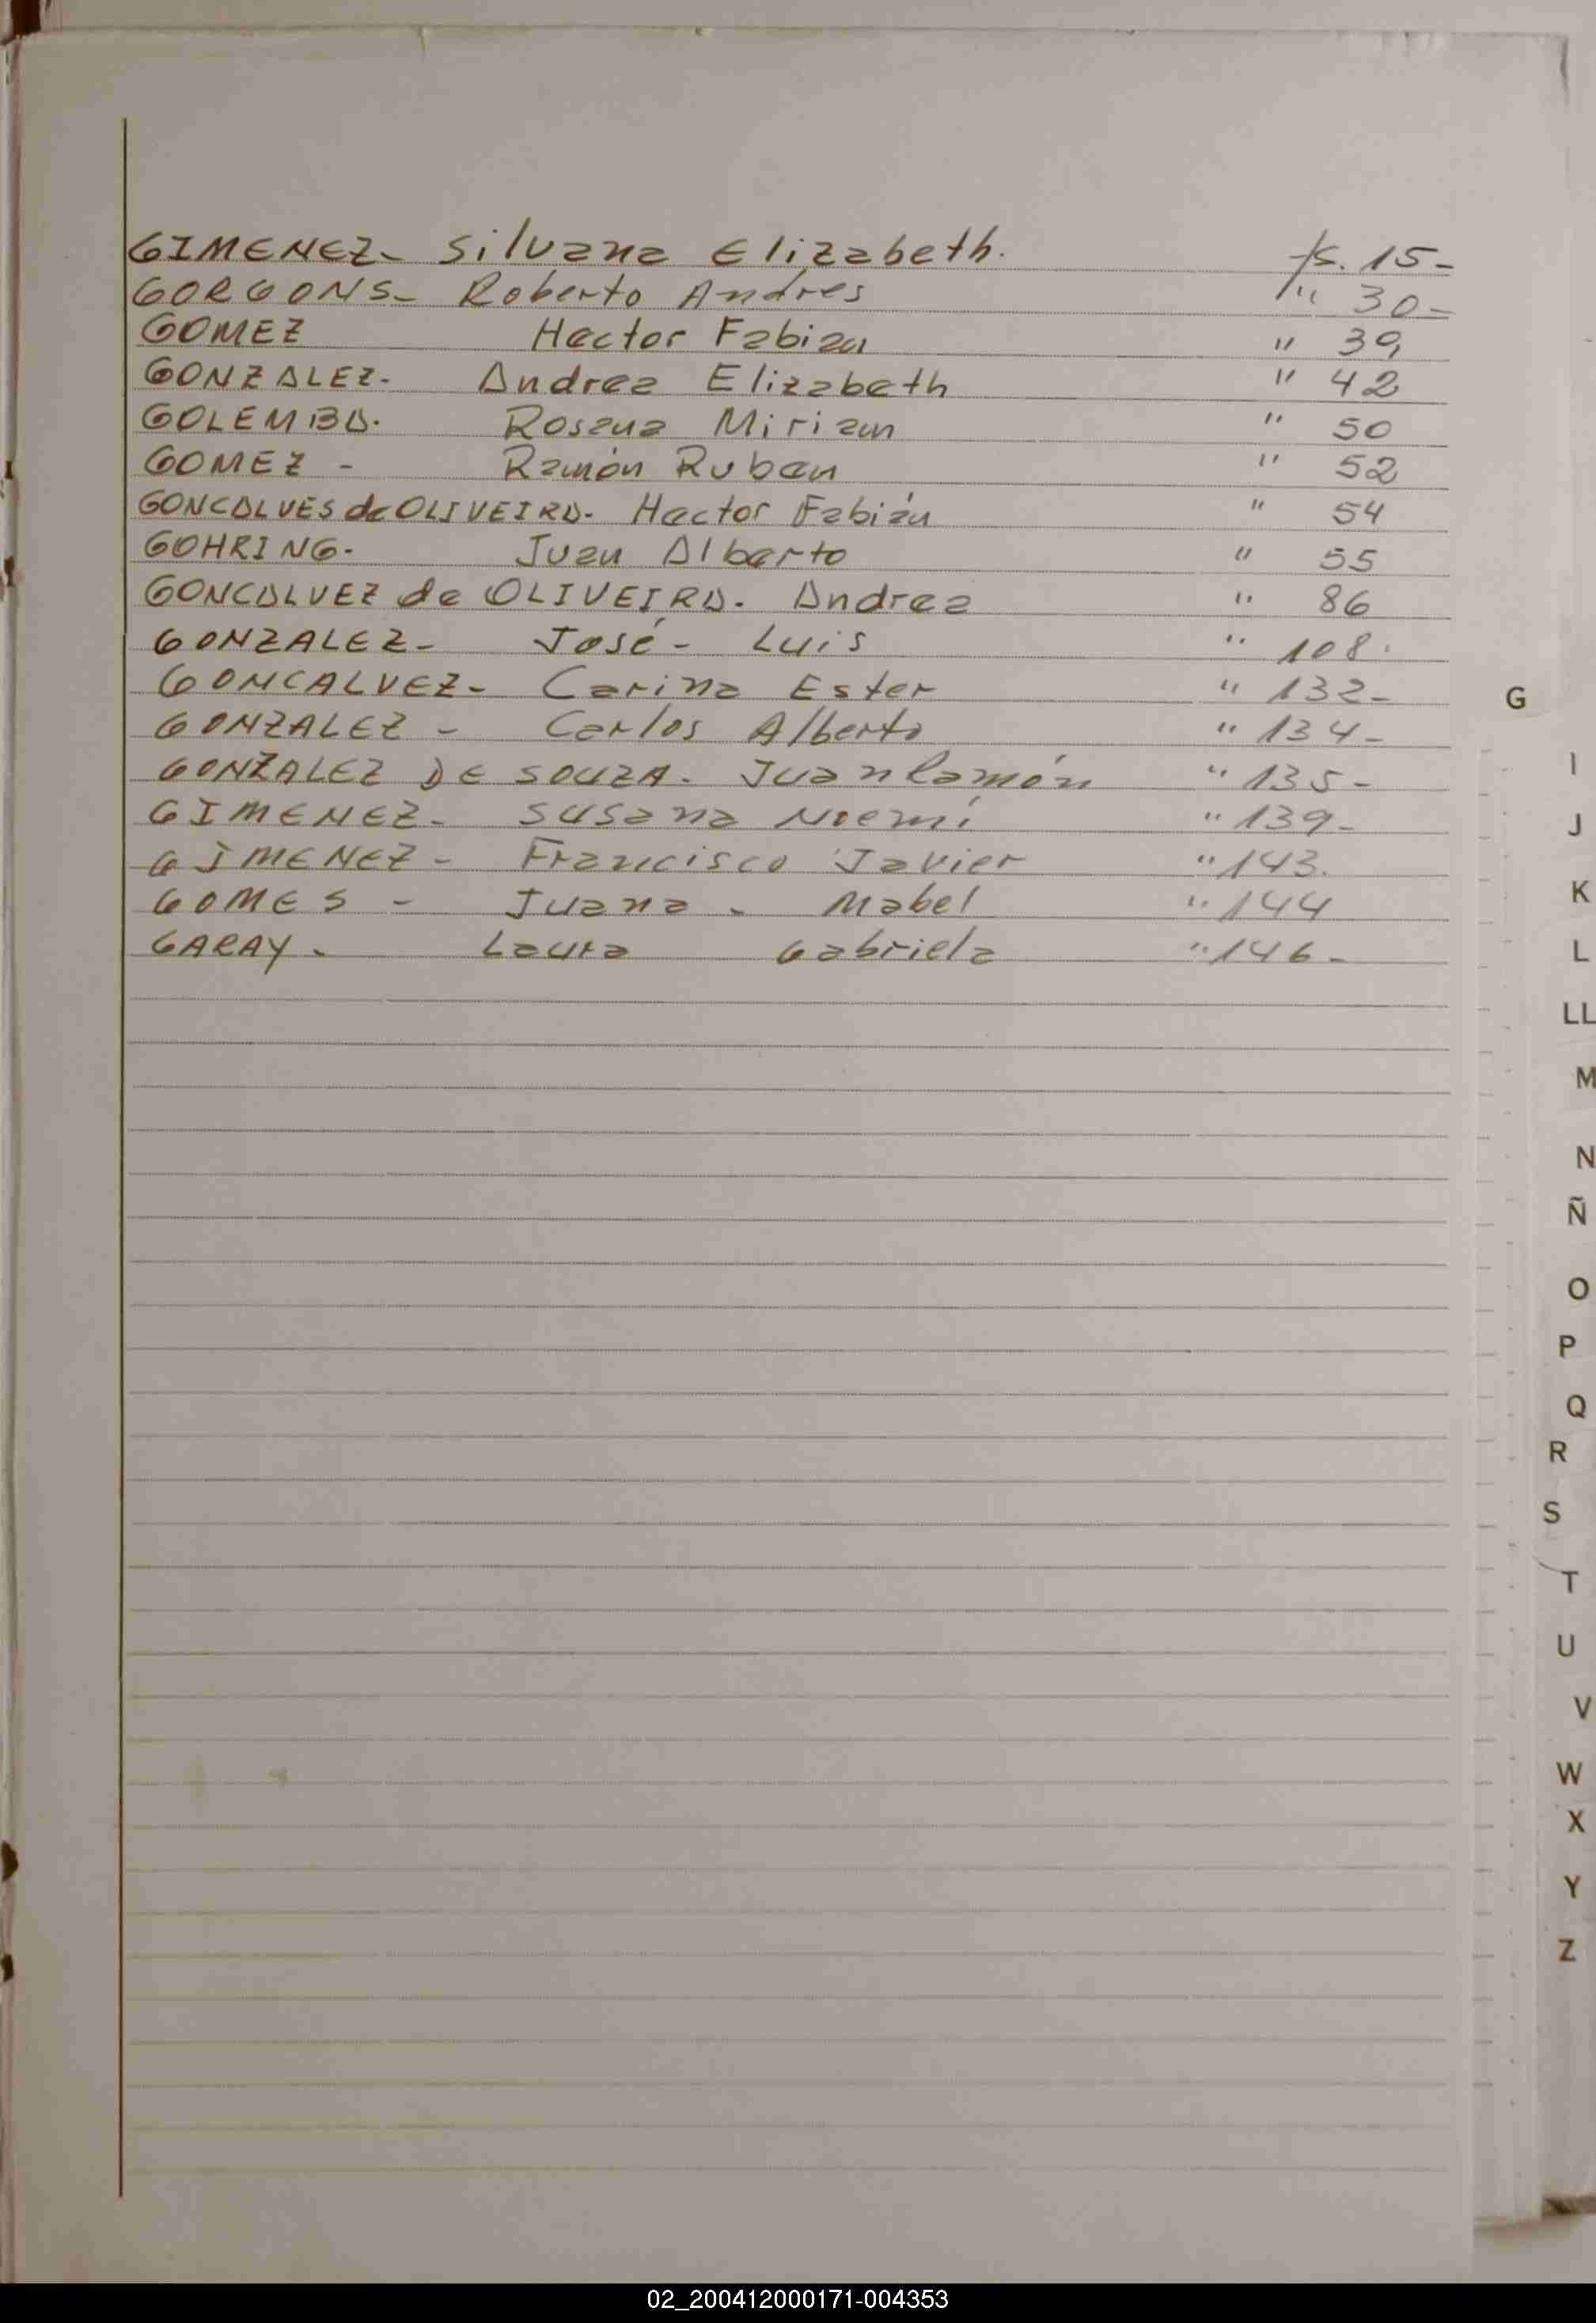 GIMENEZ- Silvana Elizabeth. fs. 15-
GORGONS- Roberto Andres " 30-
GOMEZ Hector Fabian " 39
GONZALEZ- Andrea Elizabeth " 42
GOLEMBA. Rosana Miriam " 50
GOMEZ - Ramón Ruben " 52
GONCALVES de OLIVEIRA- Hector Fabián " 54
GOHRING- Juan Alberto " 55
GONCALVEZ de OLIVEIRA. Andrea " 86
GONZALEZ- José- Luis " 108.
GONCALVEZ- Carina Ester " 132-
GONZALEZ - Carlos Alberto " 134-
GONZALEZ DE SOUZA. Juan Ramón " 135-
GIMENEZ- Susana Noemí " 139-
GIMENEZ- Francisco Javier " 143.
GOMES - Juana - Mabel " 144
GARAY- Laura Gabriela " 146-
G
I
J
K
L
LL
M
N
Ñ
O
P
Q
R
S
T
U
V
W
X
Y
Z
02_200412000171-004353